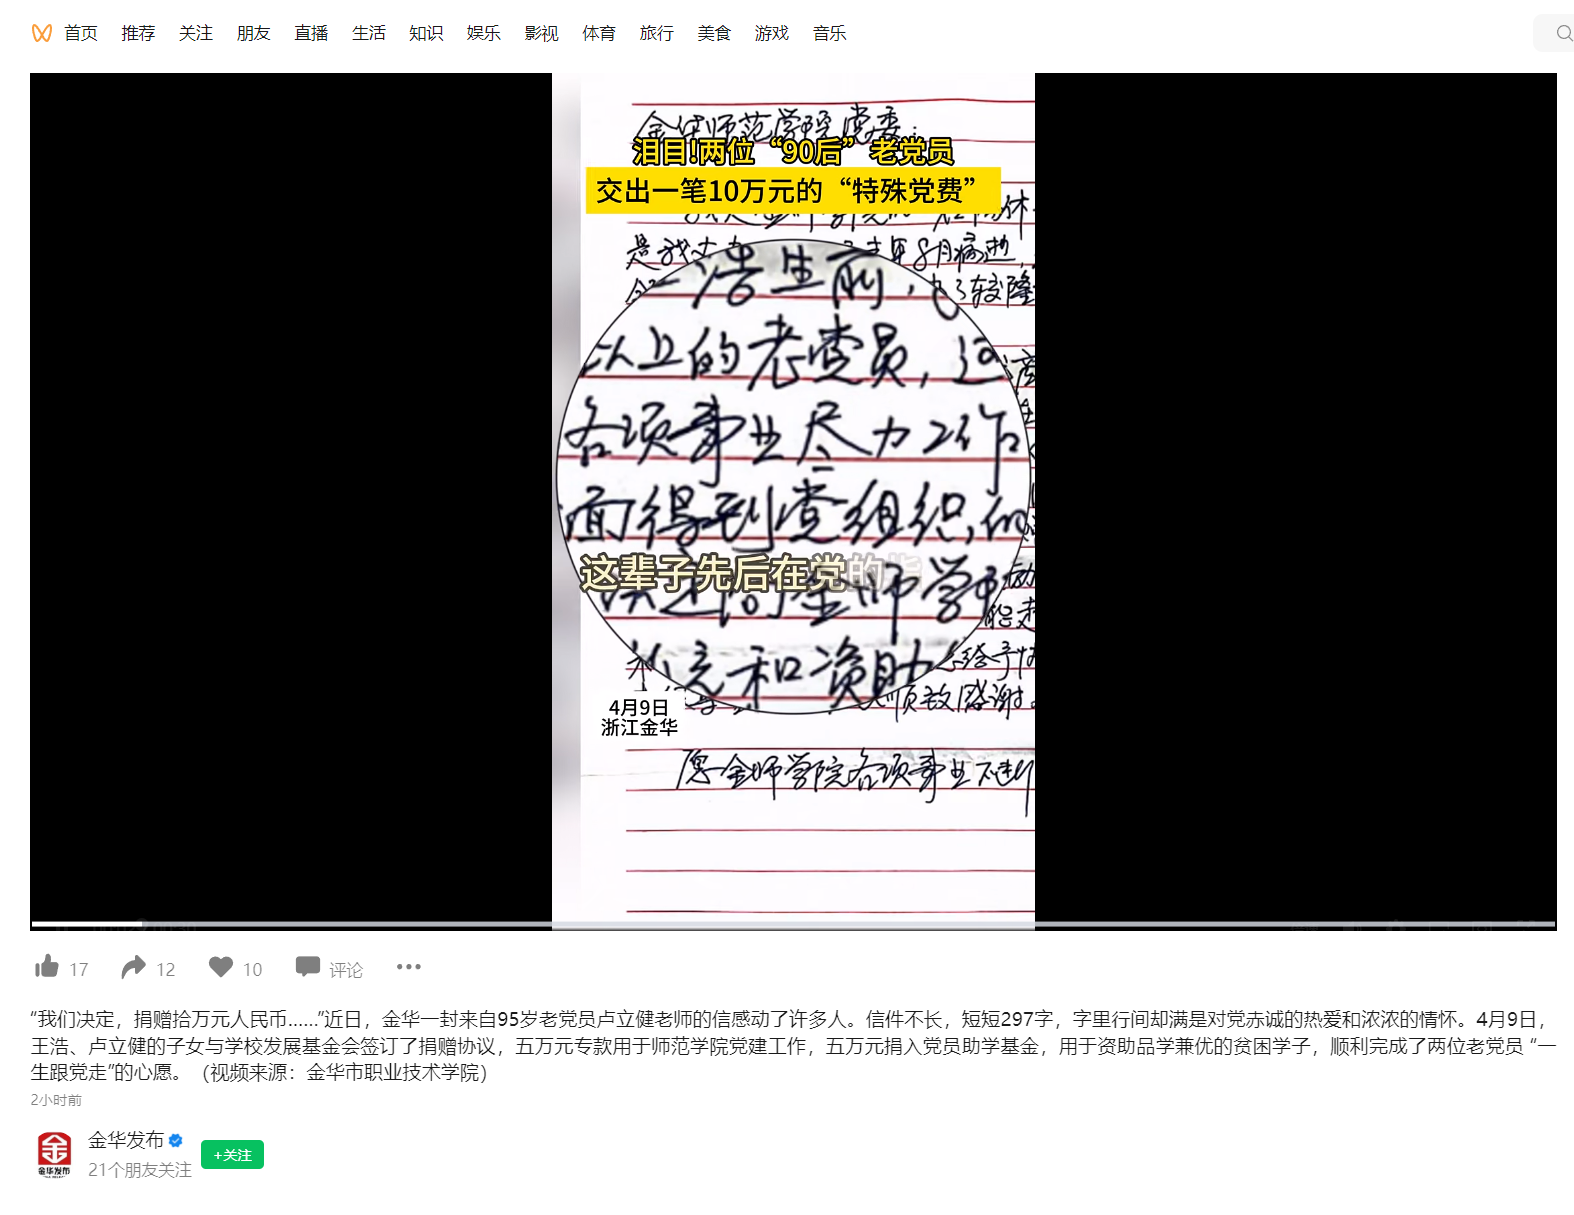 首页 推荐 关注 朋友 直播 生活 知识 娱乐 影视 体育 旅行 美食 游戏 音乐
金华师范学院党委：
泪目!两位“90后”老党员
交出一笔10万元的“特殊党费”
年8月病逝，
浩生前，
较隆
以上的老党员，这
各项事业尽力工作
面得到党组织，
这辈子先后在党的指
金师学
和资助
给予
顺致感谢。
4月9日
浙江金华
愿金师学院各项事业
17 12 10 评论
“我们决定，捐赠拾万元人民币......”近日，金华一封来自95岁老党员卢立健老师的信感动了许多人。信件不长，短短297字，字里行间却满是对党赤诚的热爱和浓浓的情怀。4月9日，
王浩、卢立健的子女与学校发展基金会签订了捐赠协议，五万元专款用于师范学院党建工作，五万元捐入党员助学基金，用于资助品学兼优的贫困学子，顺利完成了两位老党员 “一
生跟党走”的心愿。（视频来源：金华市职业技术学院）
2小时前
金华发布
金华发布
+关注
21个朋友关注